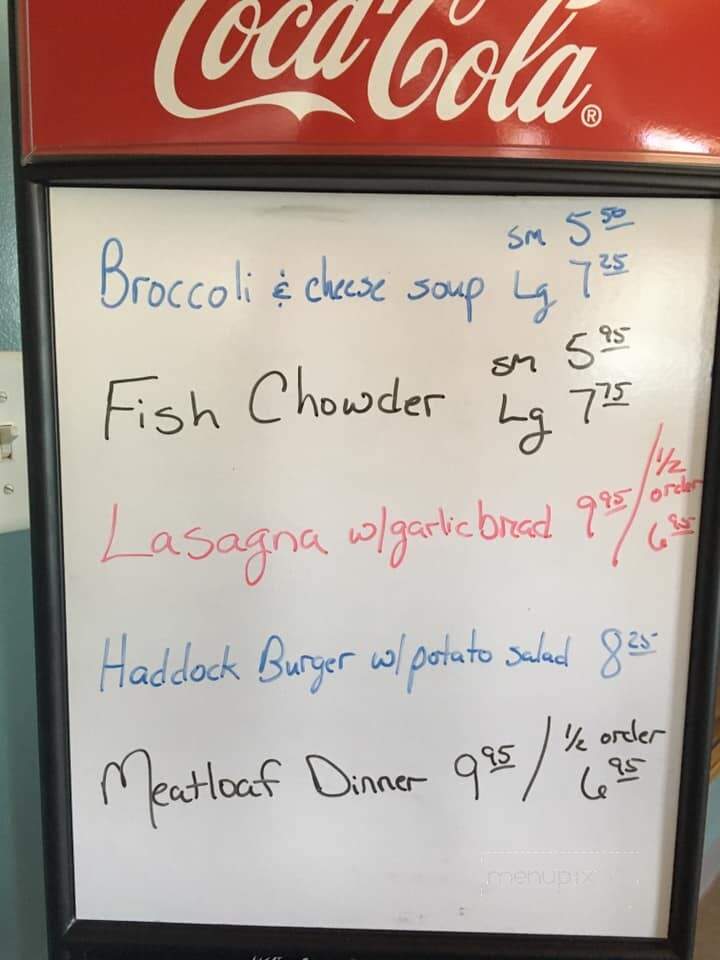 Coca-Cola®
Broccoli & cheese soup sm 5 50
Lg 7 25
Fish Chowder sm 5 95
Lg 7 75
Lasagna w/garlic bread 9 95 / 1/2 order 6 95
Haddock Burger w/ potato salad 8 25
Meatloaf Dinner 9 95 / 1/2 order 6 95
menupix